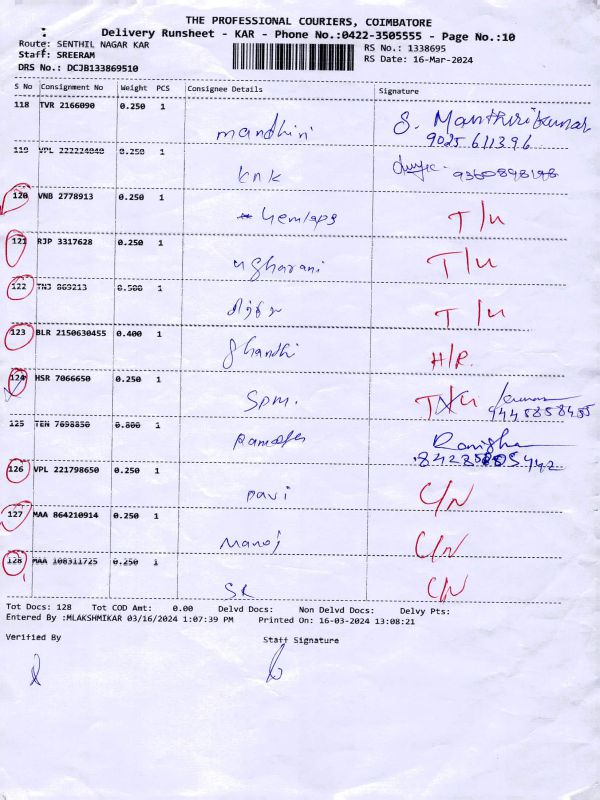 THE PROFESSIONAL COURIERS, COIMBATORE
Delivery Runsheet - KAR - Phone No.:0422-3505555 - Page No.:10
Route: SENTHIL NAGAR KAR RS No.: 1338695
Staff: SREERAM RS Date: 16-Mar-2024
DRS No.: DCJB133869510
S No Consignment No Weight PCS Consignee Details Signature
118 TVR 2166090 0.250 1
mandhiri
9025611396
119 VPL 222224040 0.250 1
knk
120 VNB 2778913 0.250 1
T/u
121 RJP 3317628 0.250 1
T/u
122 TNJ 869213 0.500 1
T/u
123 BLR 2150630455 0.400 1
ghandhi H/R.
124 HSR 7066650 0.250 1
spm. T/u
9445858455
125 TEN 7698850 0.800 1
126 VPL 221798650 0.250 1
pavi C/N
127 MAA 864210914 0.250 1
Manoj C/N
128 MAA 108311725 0.250 1
SR C/N
Tot Docs: 128 Tot COD Amt: 0.00 Delvd Docs: Non Delvd Docs: Delvy Pts:
Entered By :MLAKSHMIKAR 03/16/2024 1:07:39 PM Printed On: 16-03-2024 13:08:21
Verified By Staff Signature